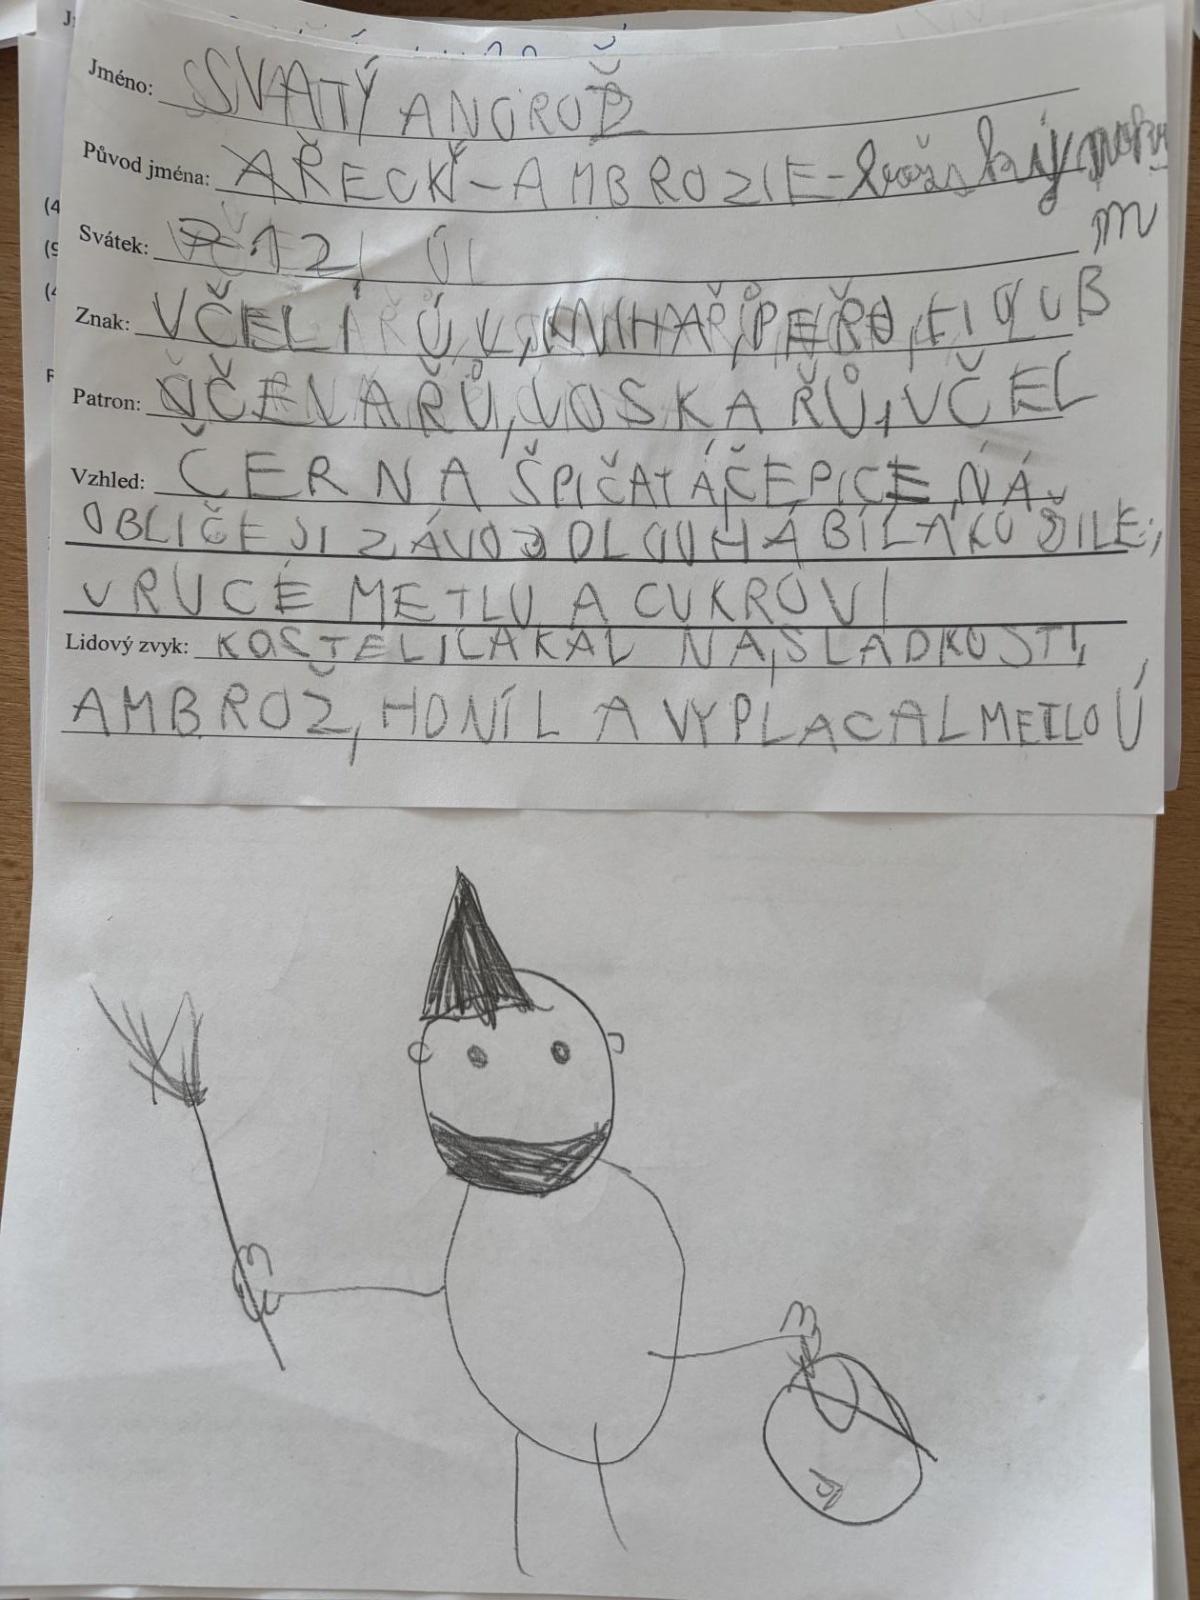 Jméno: SVATÝ ANOROŽ
Původ jména: AŘECKÝ - AMBROZIE - božský
Svátek: 12
Znak: VČELÍ ÚL, KNIHA, PERO,
Patron: VČELAŘŮ, VOSKAŘŮ, VČEL
Vzhled: ČERNA ŠPIČATÁ ČEPICE, NA
OBLIČEJI ZÁVOJ DLOUHÁ BÍLA KOŠILE,
V RUCE METLU A CUKROVI
Lidový zvyk: KOSTELI LAKAL NA SLADKOSTI,
AMBROŽ, HONÍL A VYPLACAL METLOÚ